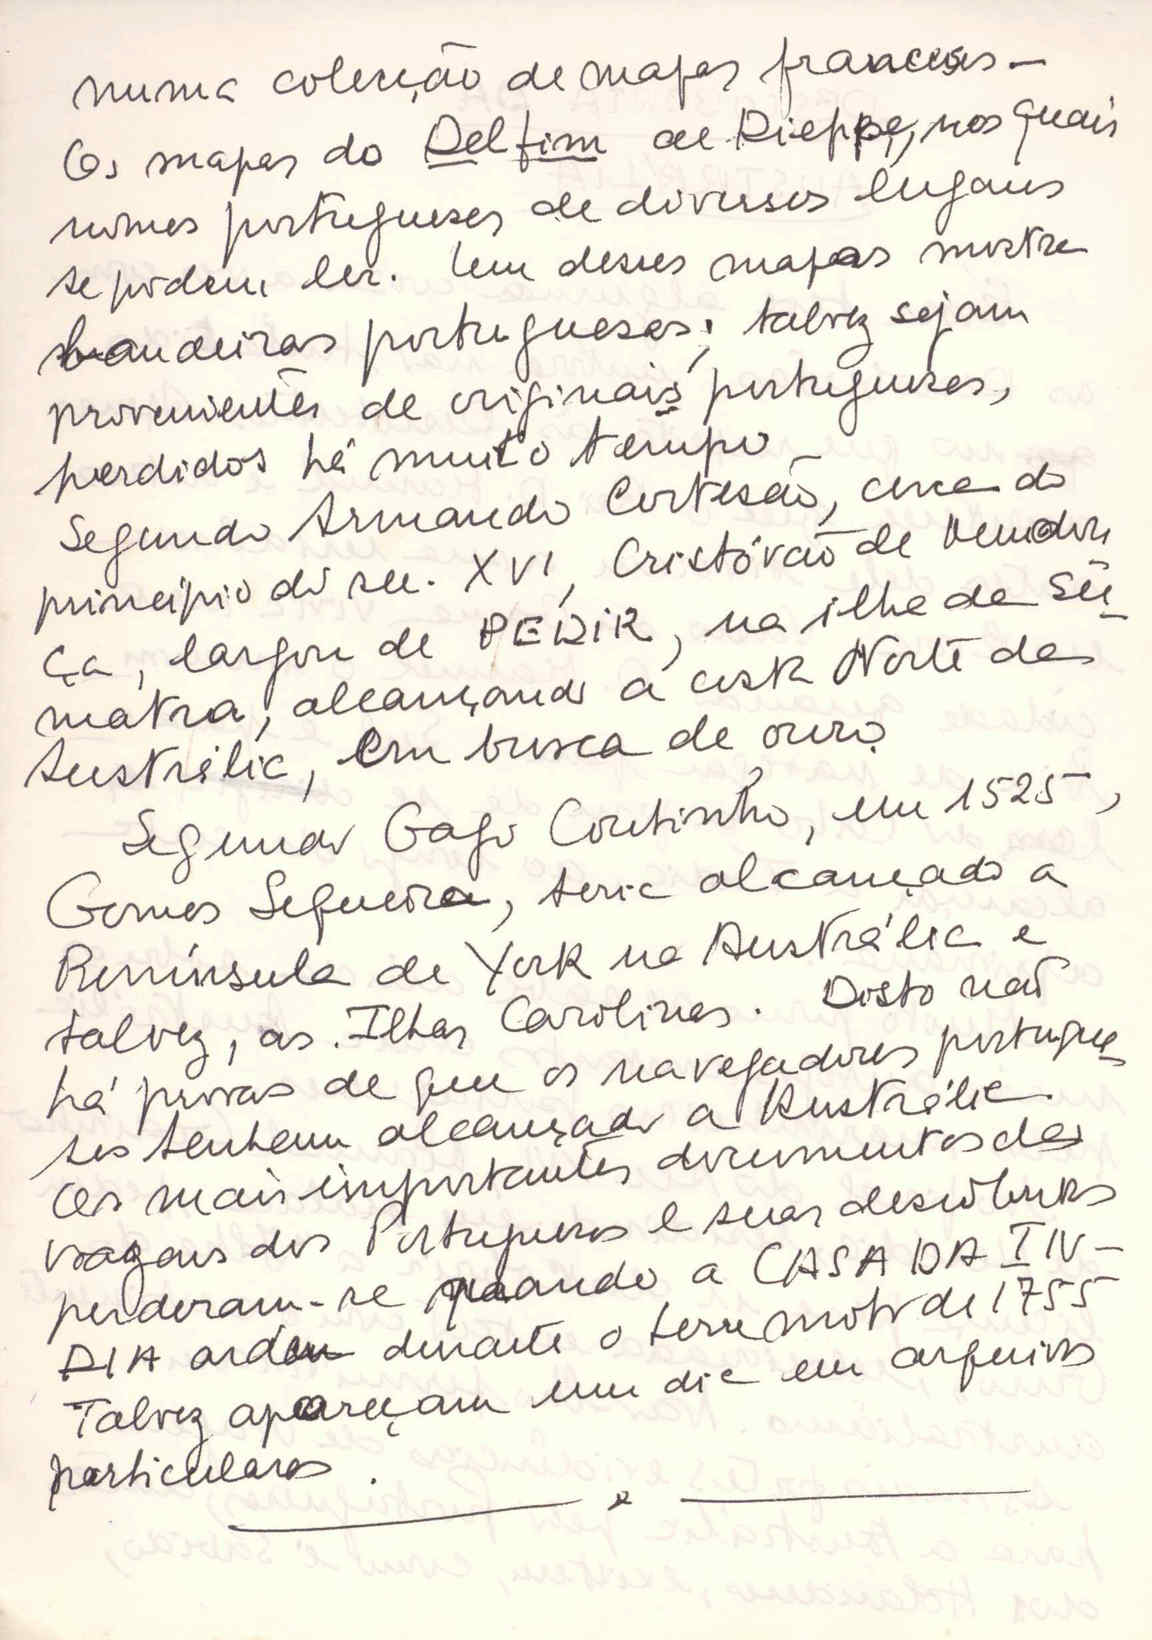 numa colecção de mapas franceses –
Os mapas do Delfim de Dieppe, nos quais
nomes portugueses de diversos lugares
se podem ler. Um desses mapas mostra
bandeiras portuguesas; talvez sejam
provenientes de originais portugueses,
perdidos há muito tempo
Segundo Armando Cortesão, cerca do
princípio do sec. XVI, Cristóvão de Mendon
ça, largou de PEDIR, na ilha de Sú-
matra, alcançando a costa Norte da
Austrália, em busca de ouro.
Segundo Gago Coutinho, em 1525,
Gomes Sequeira, teria alcançado a
Península de York na Austrália e
talvez, as Ilhas Carolinas. Disto não
há provas de que os navegadores portugue
ses tenham alcançado a Austrália.
Os mais importantes documentos das
viagens dos Portugueses e suas descobertas
perderam-se quando a CASA DA IN-
DIA ardeu durante o terremoto de 1755
Talvez apareçam um dia em arquivos
particulares.